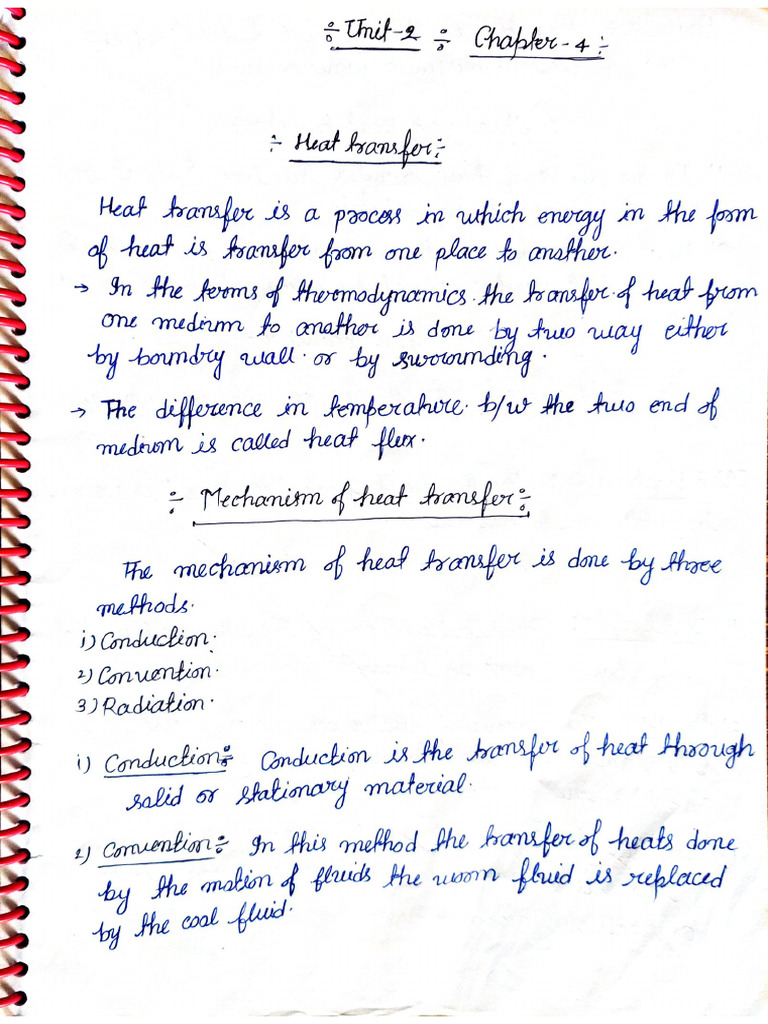 ÷ Unit-2 ÷ Chapter-4 ÷
÷ Heat transfer ÷
Heat transfer is a process in which energy in the form
of heat is transfer from one place to another.
→ In the terms of thermodynamics the transfer of heat from
one medium to another is done by two way either
by boundry wall or by surrounding.
→ The difference in temperature b/w the two end of
medium is called heat flux.
÷ Mechanism of heat transfer ÷
The mechanism of heat transfer is done by three
methods.
i) Conduction.
2) Convention.
3) Radiation.
i) Conduction ÷ Conduction is the transfer of heat through
solid or stationary material.
2) Convention ÷ In this method the transfer of heats done
by the motion of fluids the worm fluid is replaced
by the coal fluid.